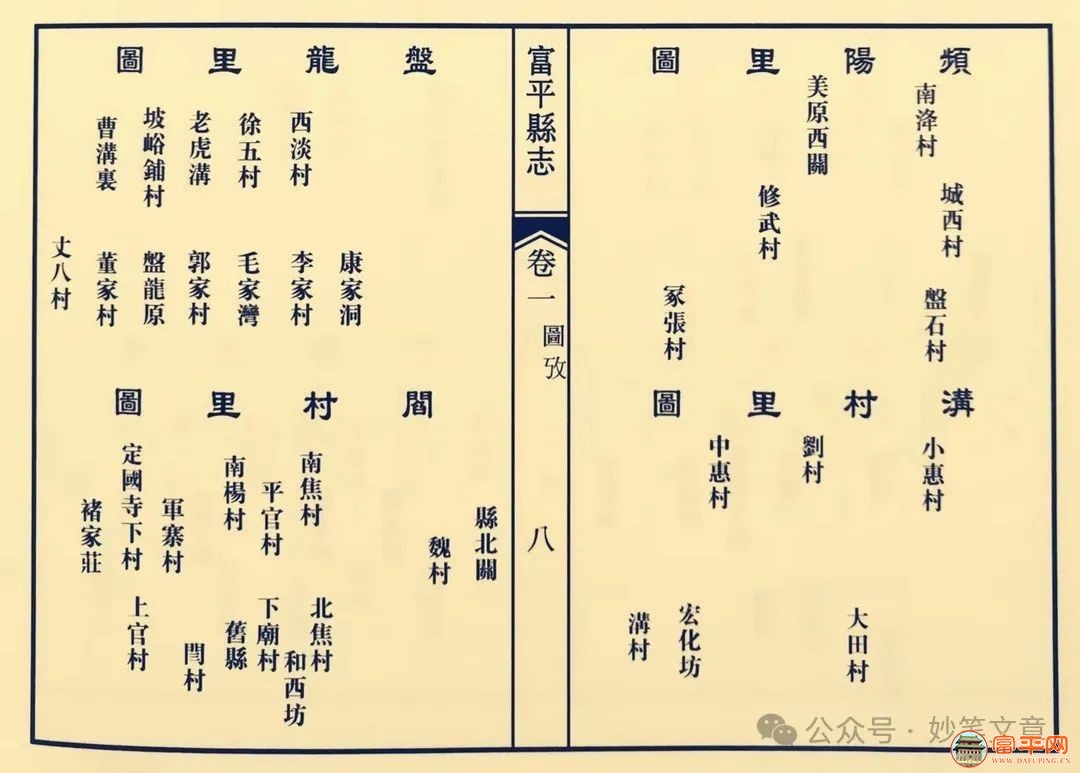 頻陽里圖
南洚村
城西村
盤石村
美原西關
修武村
冢張村
溝村里圖
小惠村
大田村
劉村
中惠村
宏化坊
溝村
富平縣志
卷一
圖攷
八
盤龍里圖
康家洞
西淡村
李家村
徐五村
毛家灣
老虎溝
郭家村
坡峪鋪村
盤龍原
曹溝裏
董家村
丈八村
閻村里圖
縣北關
魏村
南焦村
北焦村
和西坊
平官村
下廟村
南楊村
舊縣
閆村
軍寨村
定國寺下村
上官村
褚家莊
公众号·妙笔文章
富平网
WWW.DAFUPING.CN